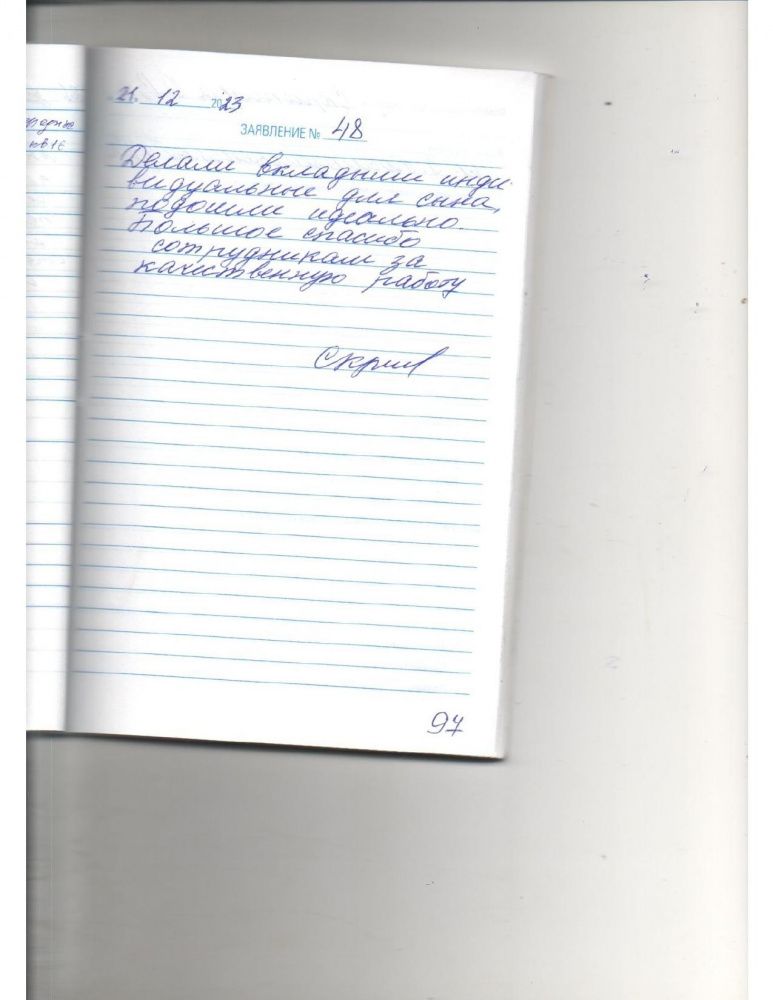 21. 12 2023
ЗАЯВЛЕНИЕ № 48
Делали вкладыши инди-
видуальные для сына,
подошли идеально.
Большое спасибо
сотрудникам за
качественную работу
97